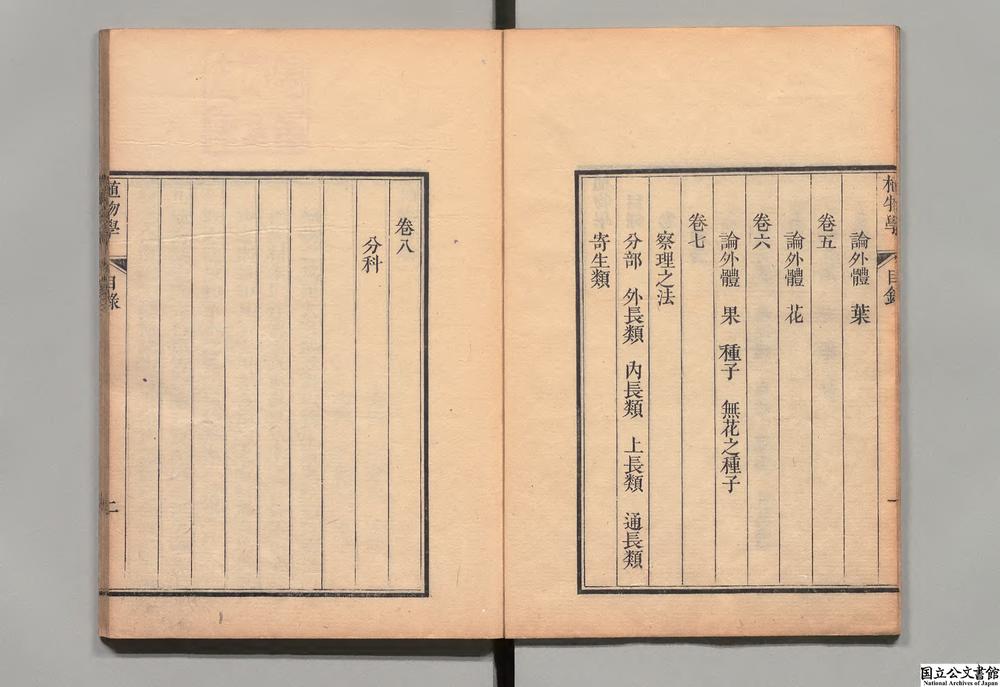 植物學
目錄
一
論外體　葉
卷五
論外體　花
卷六
論外體　果　種子　無花之種子
卷七
察理之法
分部　外長類　內長類　上長類　通長類
寄生類
卷八
分科
植物學
目錄
二
国立公文書館
National Archives of Japan